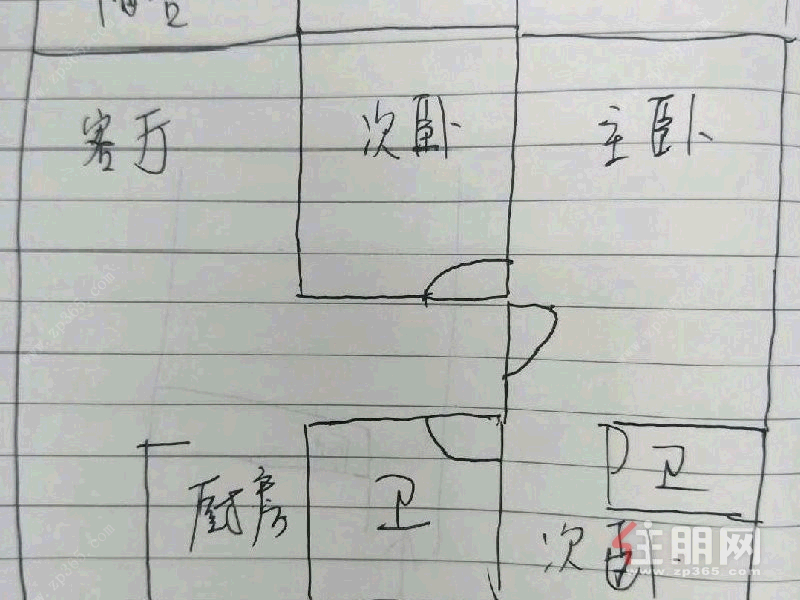 阳台
客厅
次卧
主卧
厨房
卫
卫
次卧
住朋网
www.zp365.com